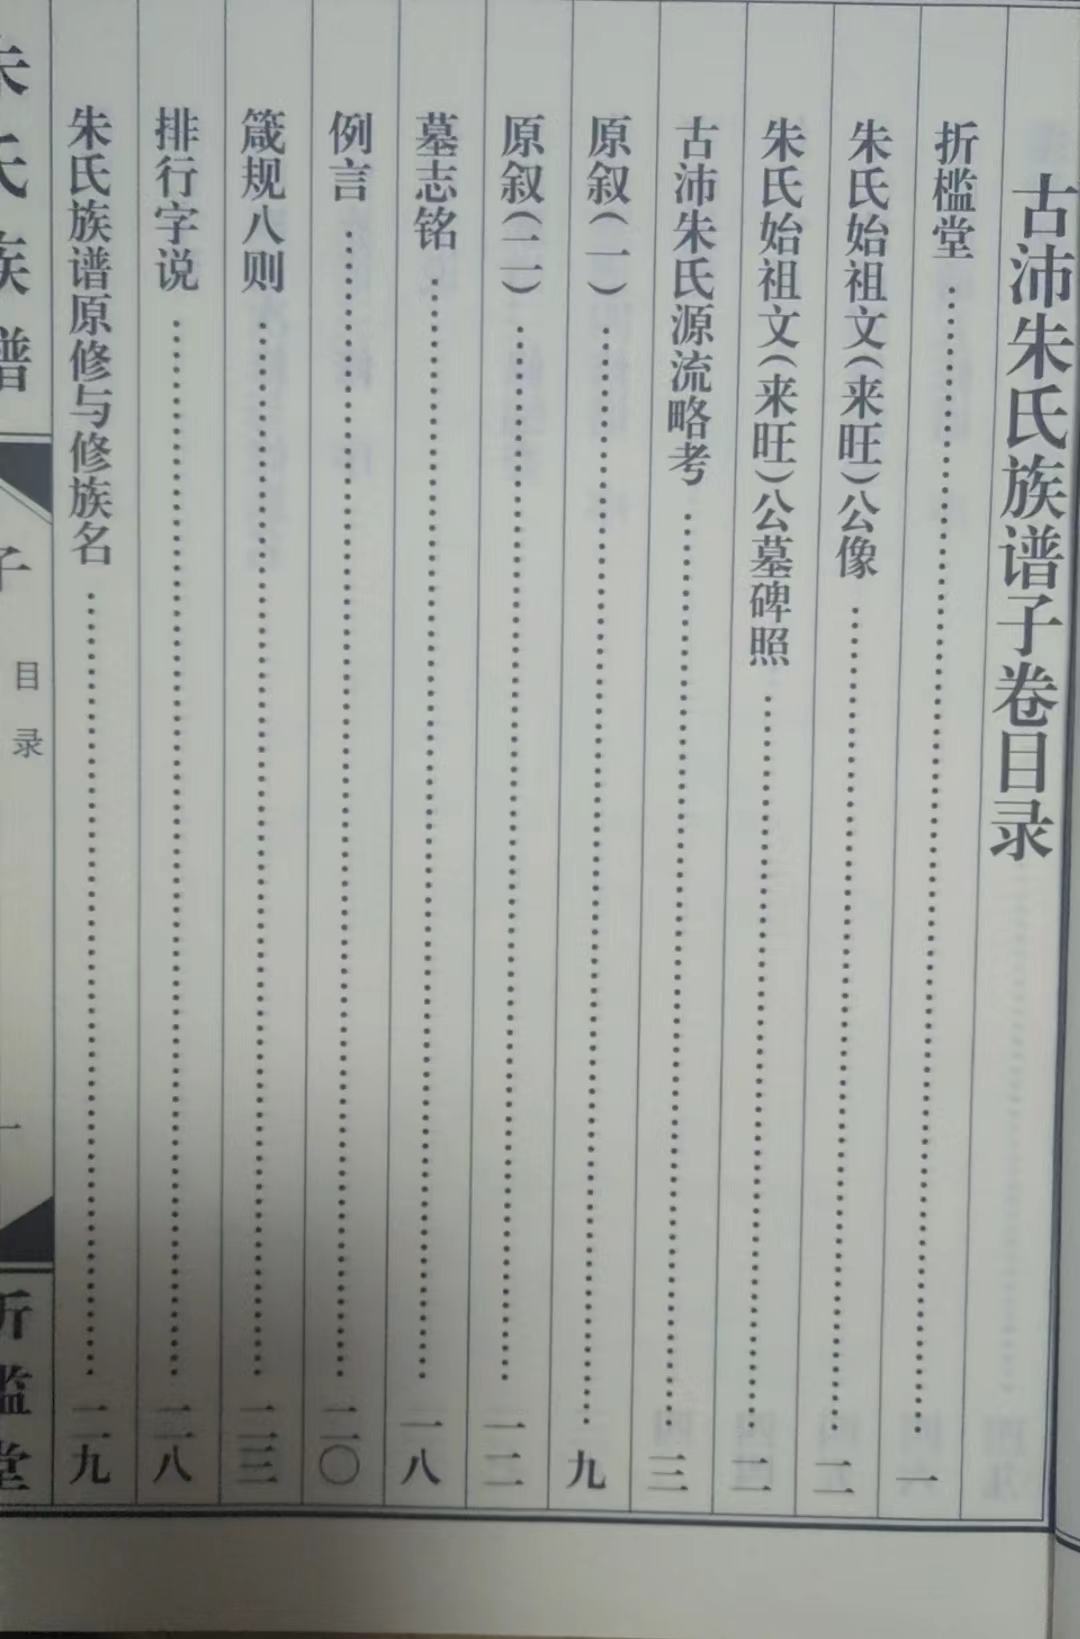 古沛朱氏族谱子卷目录
折槛堂……………………一
朱氏始祖文(来旺)公像……………………二
朱氏始祖文(来旺)公墓碑照……………………二
古沛朱氏源流略考……………………三
原叙(一)……………………九
原叙(二)……………………一二
墓志铭……………………一八
例言……………………二〇
箴规八则……………………二三
排行字说……………………二八
朱氏族谱原修与修族名……………………二九
朱氏族谱
子
目录
一
折槛堂